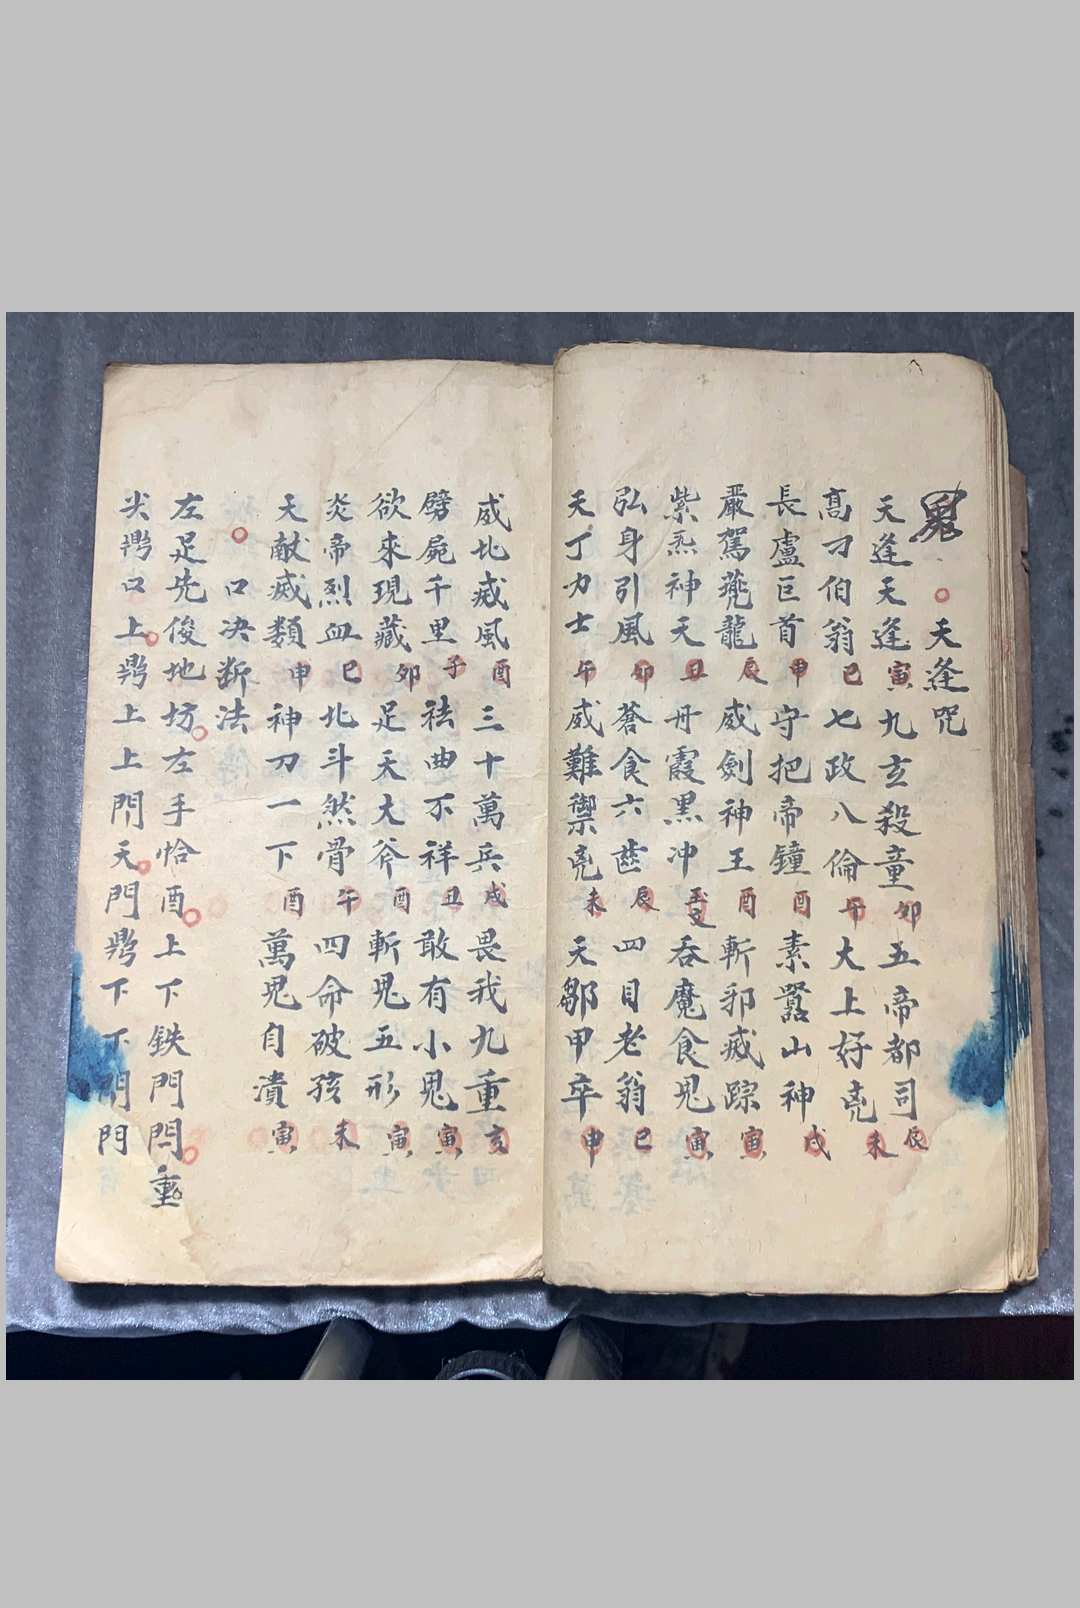 鬼
天逢咒
天逢天逢寅九玄殺童卯五帝都司辰
高刁伯翁巳七政八倫午大上好亮未
長盧巨首申守把帝鐘酉素嚣山神戌
嚴駕龍辰威劍神王酉斬邪踪寅
紫炁神天丑丹霞黑冲吞魔食鬼寅
弘身引風卯蒼食六齒辰四目老翁巳
天丁力士午威難禦亮未天鄒甲卒申
威北風酉三十萬兵戍畏我九重亥
劈屍千里子祛曲不祥丑敢有小鬼寅
欲來現藏卯足天大斧酉斬鬼五形寅
炎帝烈血巳北斗然骨午四命破孩未
天猷威類申神刀一下酉萬鬼自潰寅
口决断法
左足先俊地坊左手恰酉上下鉄門閂重
尖口上上上門天門下下門門